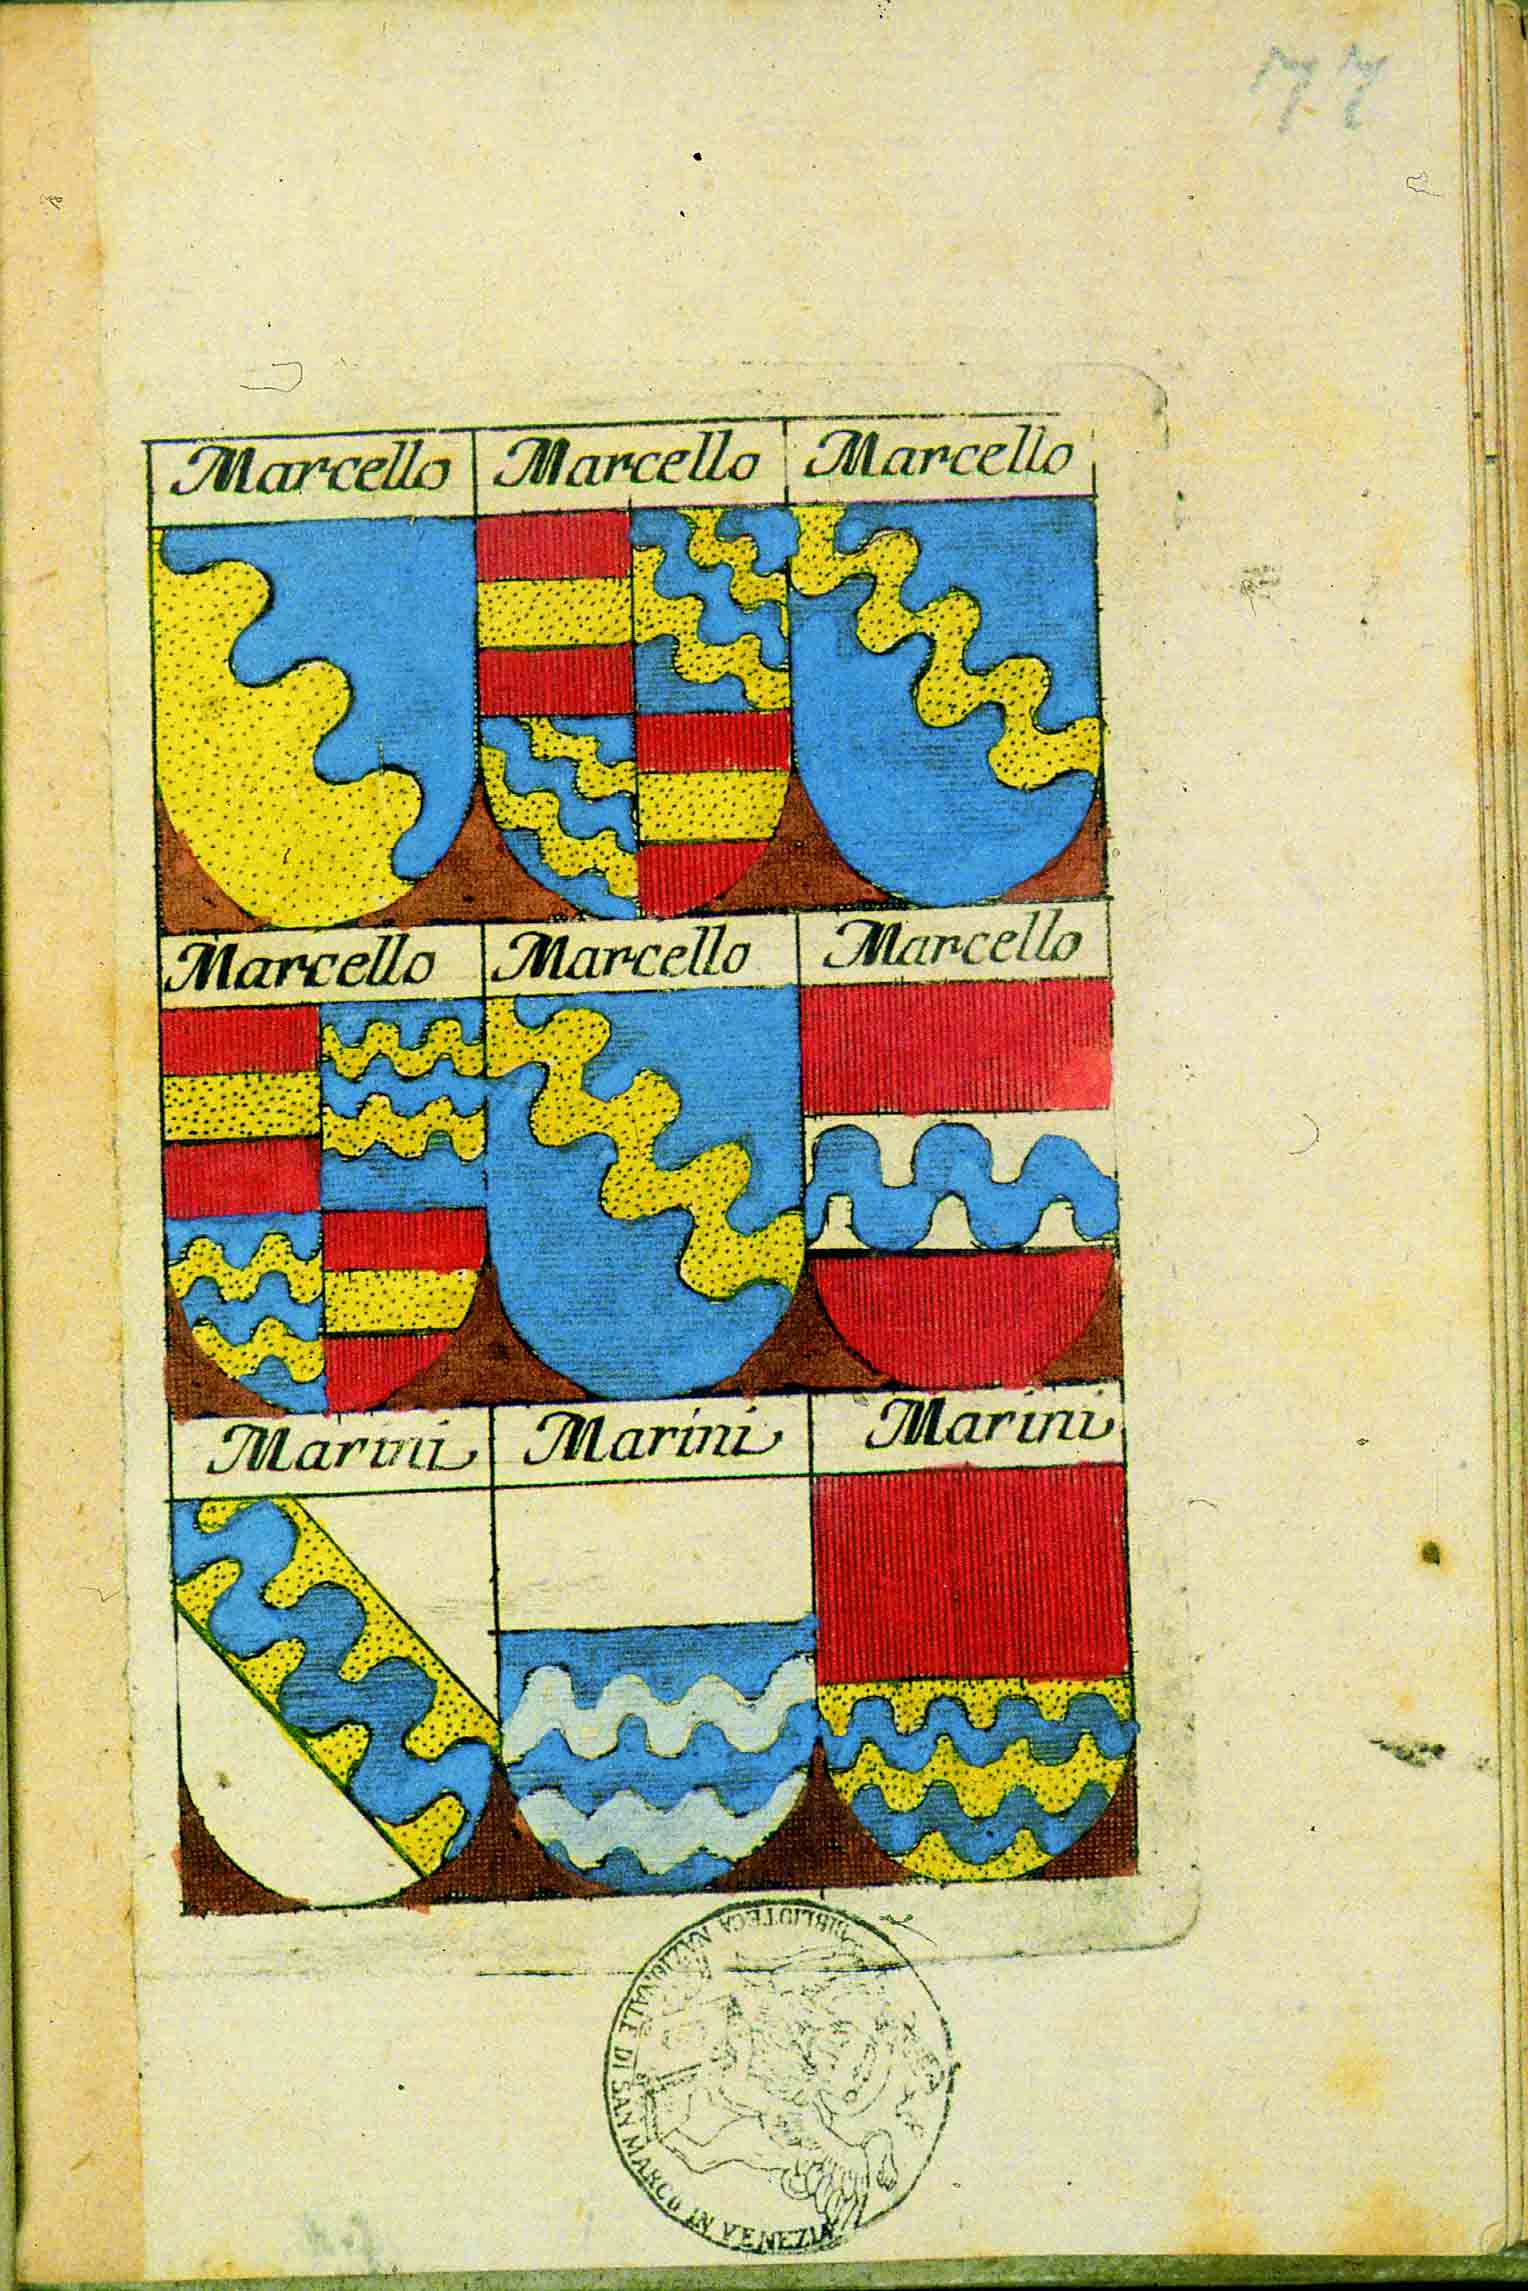 77
Marcello Marcello Marcello
Marcello Marcello Marcello
Marini Marini Marini
BIBLIOTECA NAZIONALE DI SAN MARCO IN VENEZIA